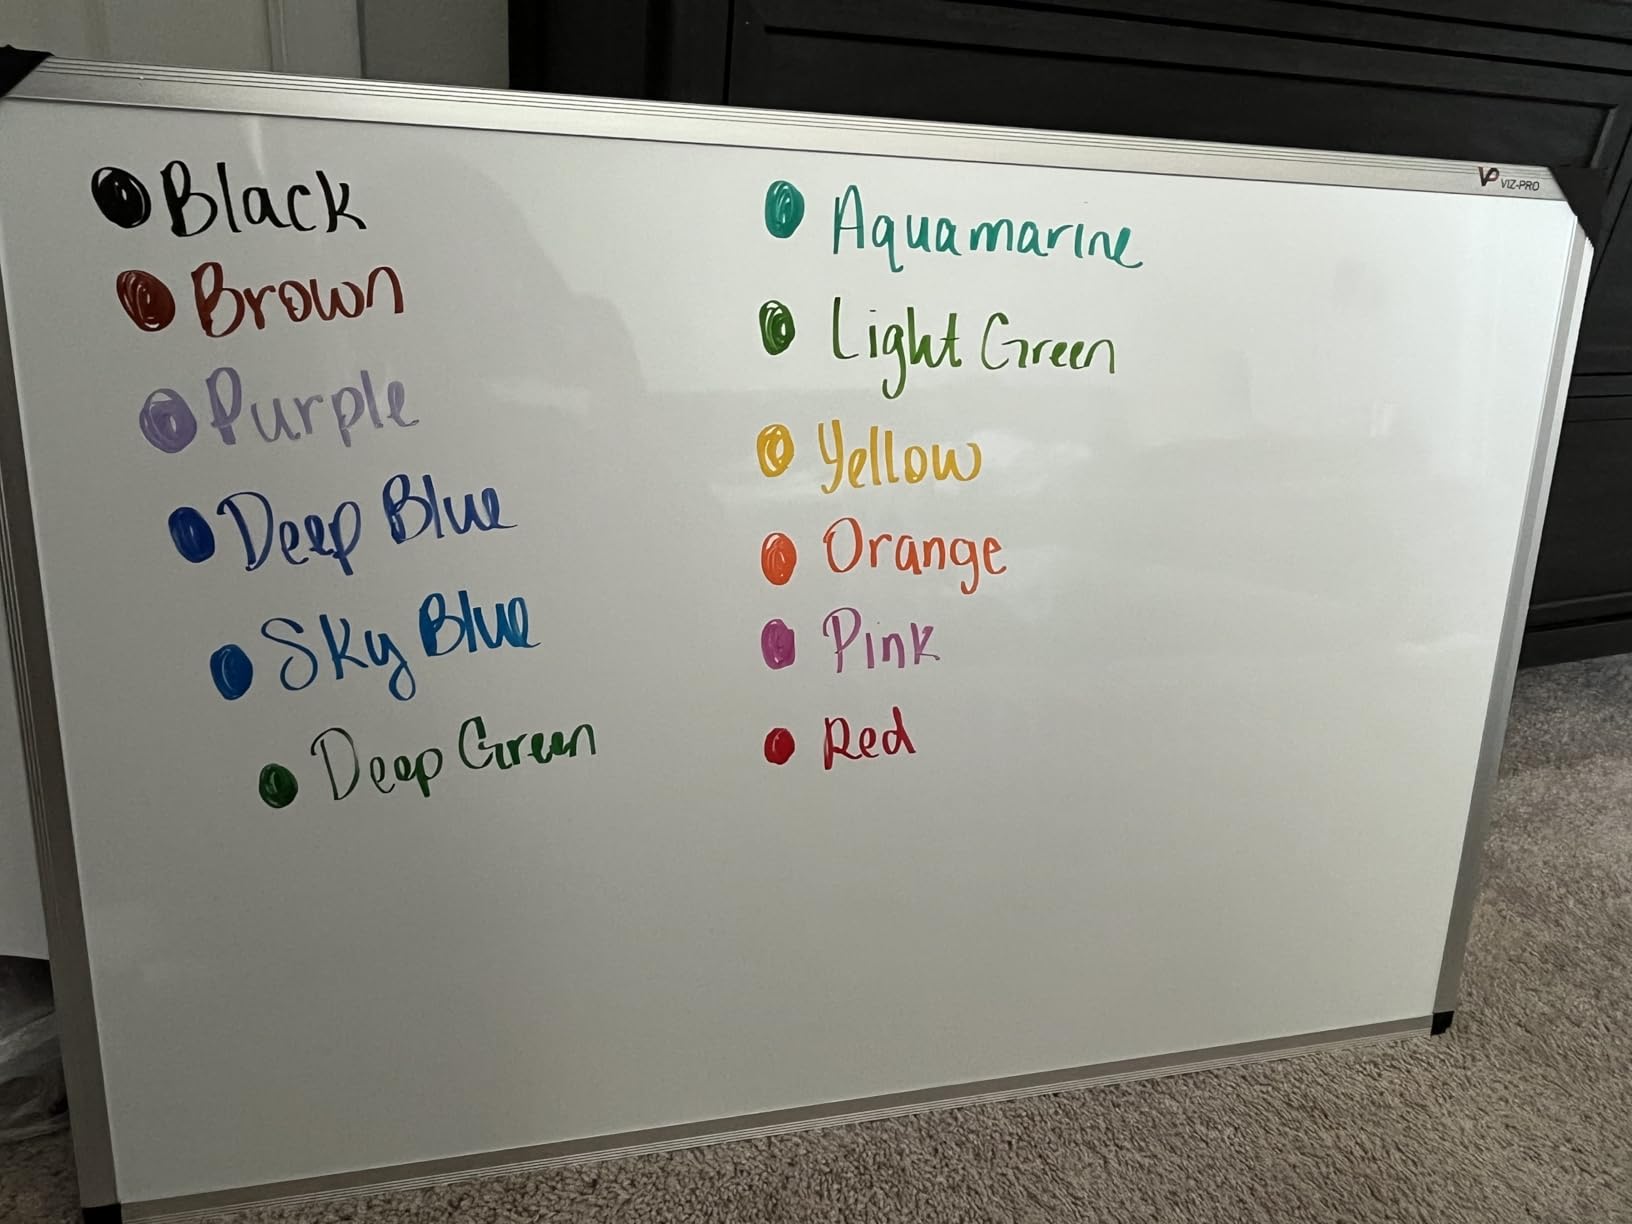 VP VIZ-PRO
Black
Brown
Purple
Deep Blue
Sky Blue
Deep Green
Aquamarine
Light Green
Yellow
Orange
Pink
Red